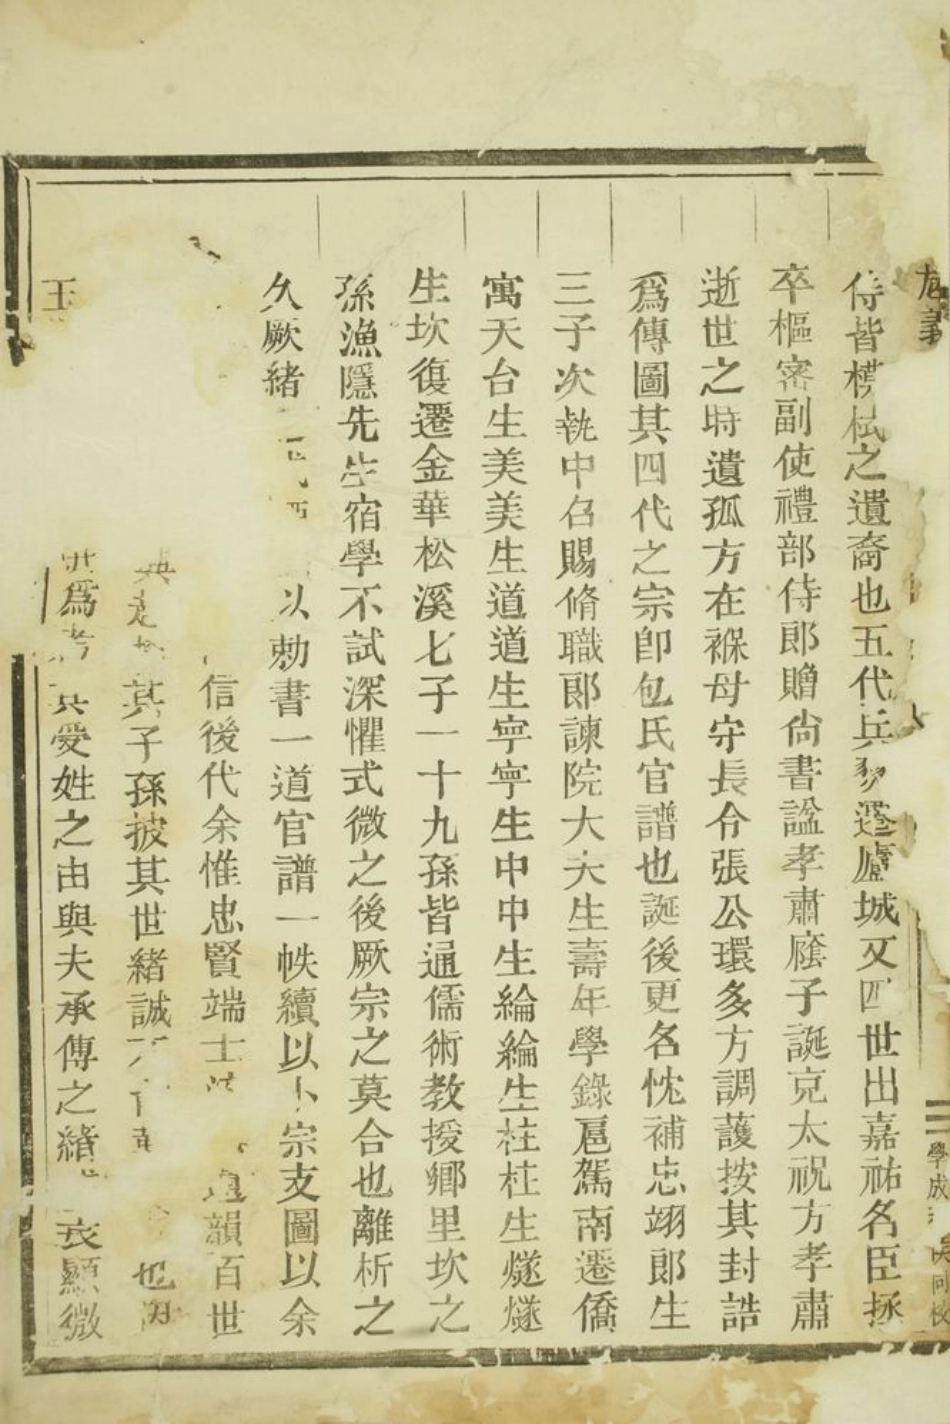 侍皆模栻之遺裔也五代兵遷廬城又四世出嘉祐名臣拯
卒樞密副使禮部侍郎贈尙書諡孝肅廕子誕克太祝方孝肅
逝世之時遺孤方在褓母守長令張公環多方調護按其封誥
爲傳圖其四代之宗卽包氏官譜也誕後更名忱補忠翊郎生
三子次執中召賜脩職郎諫院大夫生壽年學錄扈駕南遷僑
寓天台生美美生道道生寜寜生中中生綸綸生柱柱生燧燧
生坎復遷金華松溪七子一十九孫皆通儒術教授鄉里坎之
孫漁隱先生宿學不試深懼式微之後厥宗之莫合也離析之
久厥緒以勅書一道官譜一帙續以小宗支圖以余
信後代余惟忠賢端士韻百世
其子孫披其世緒誠也
爲考其受姓之由與夫承傳之緒表顯微